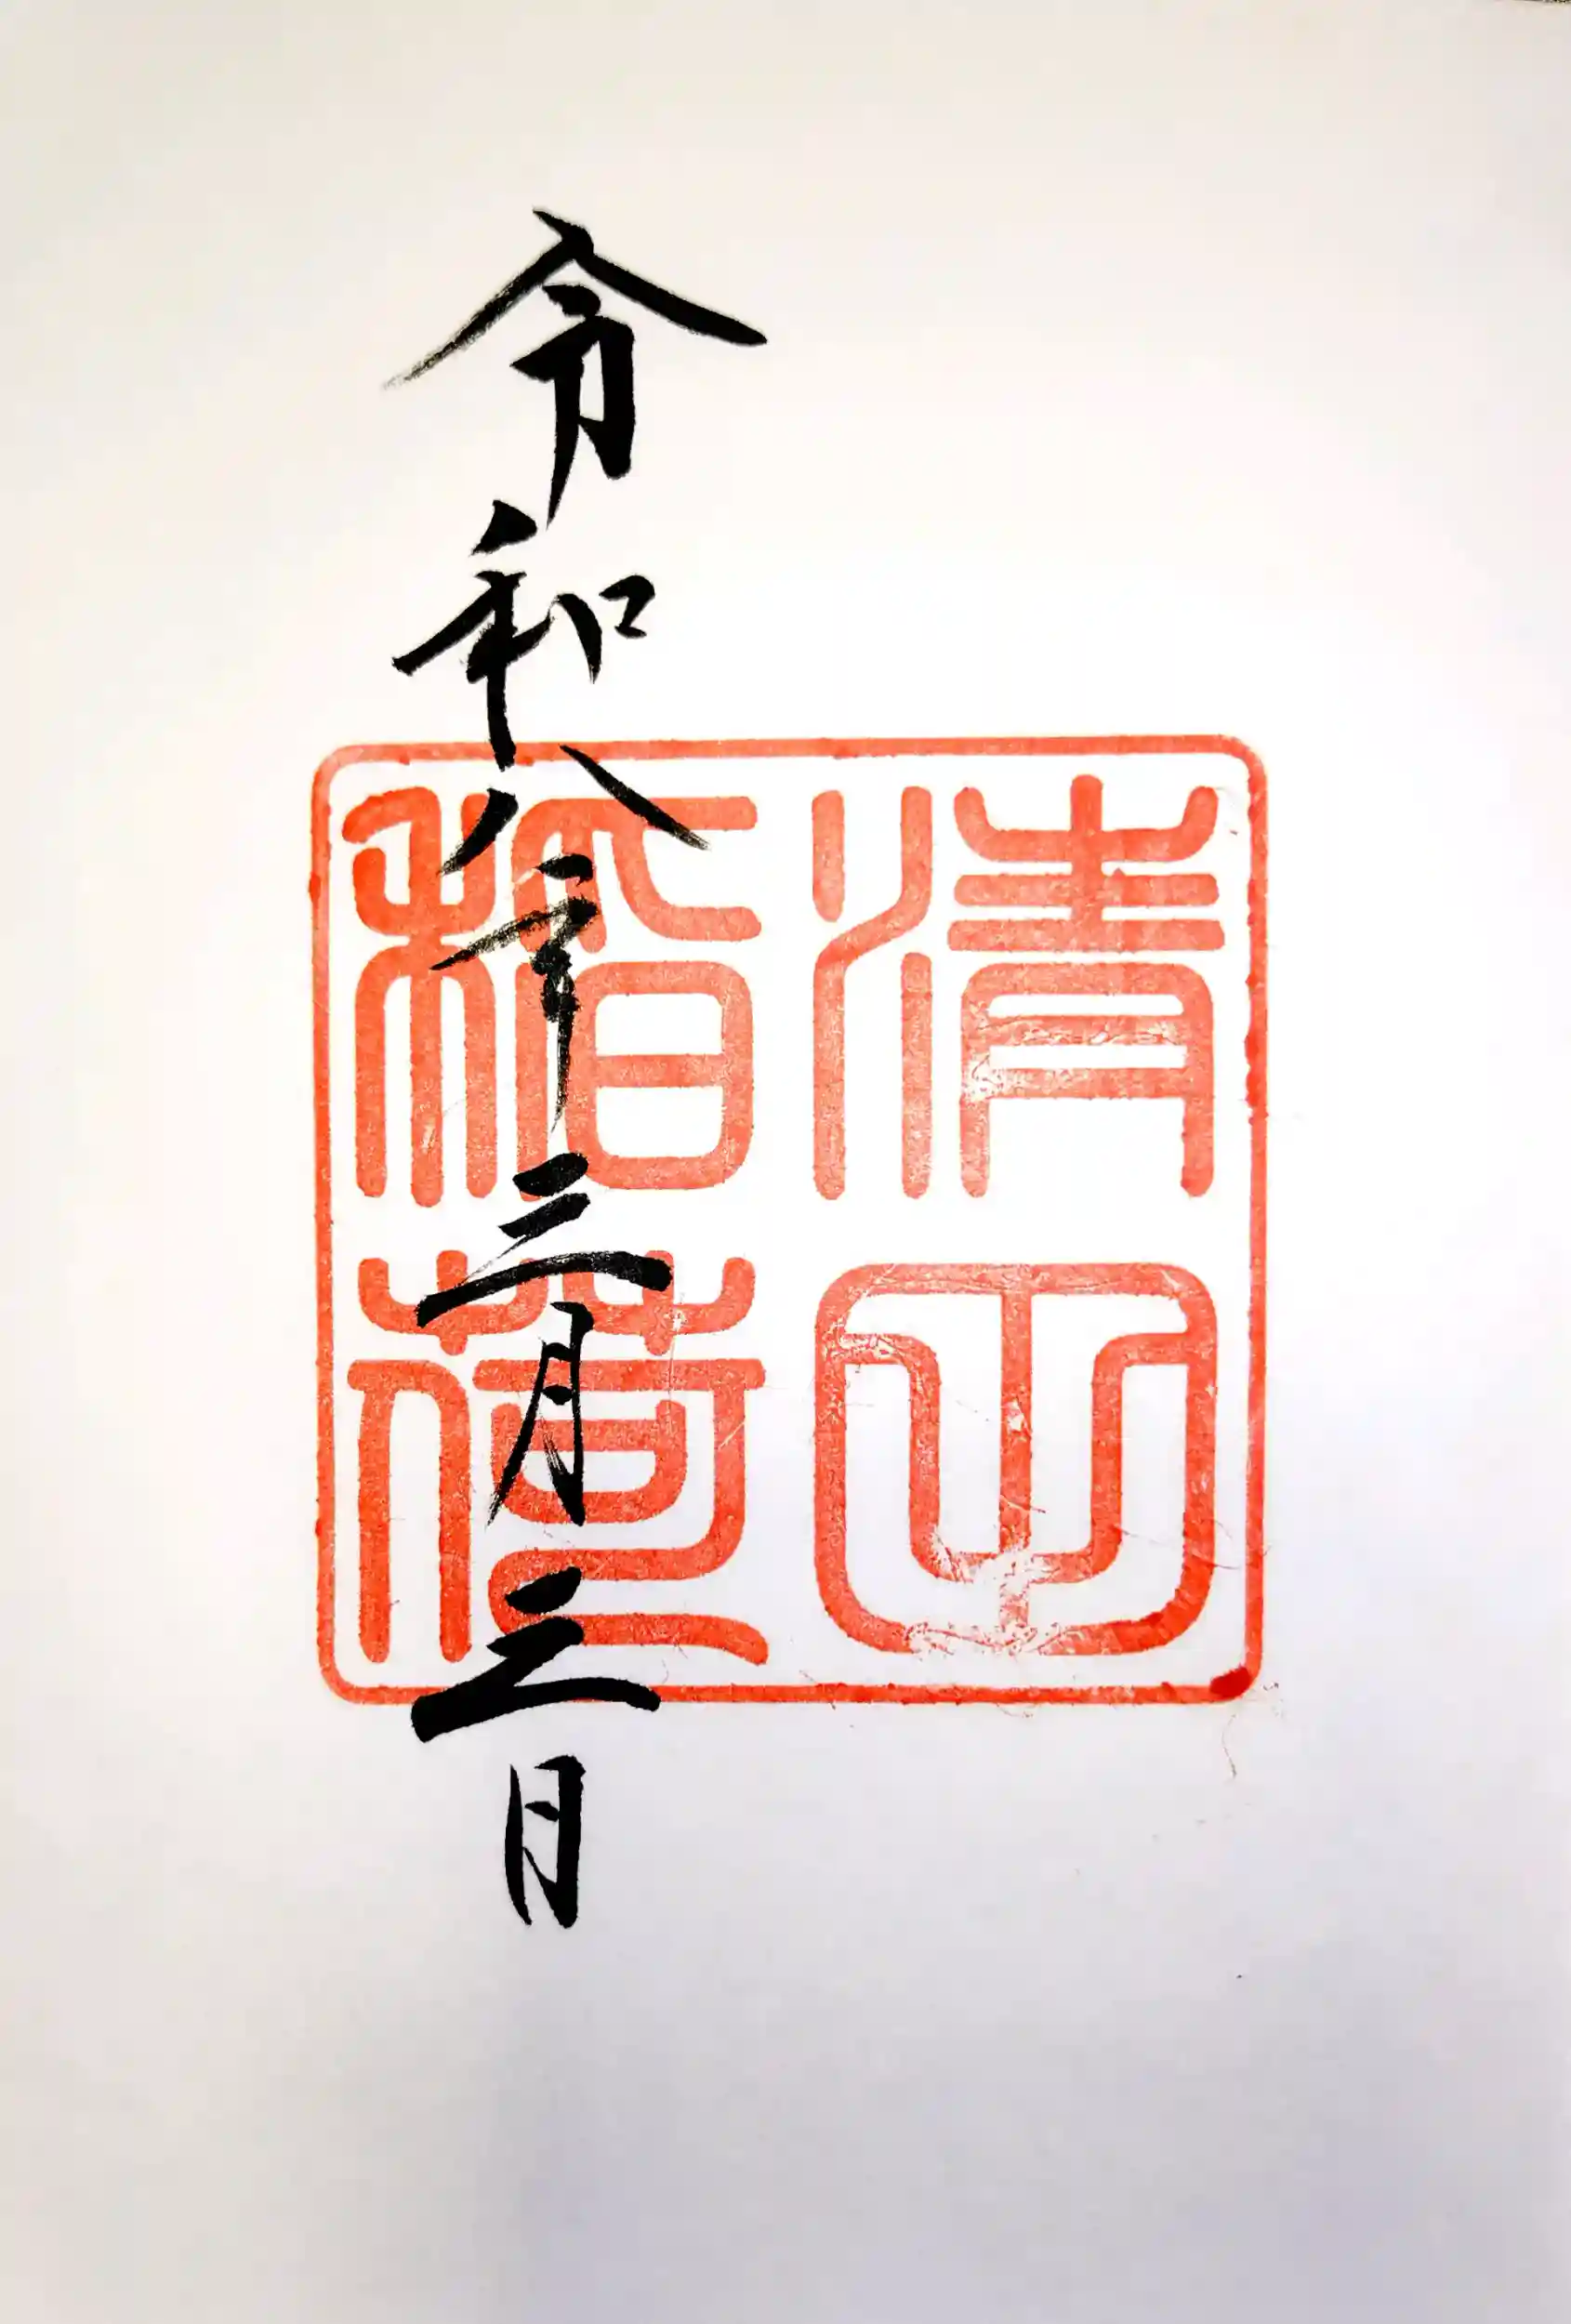 清
稲荷
令和八年三月三日